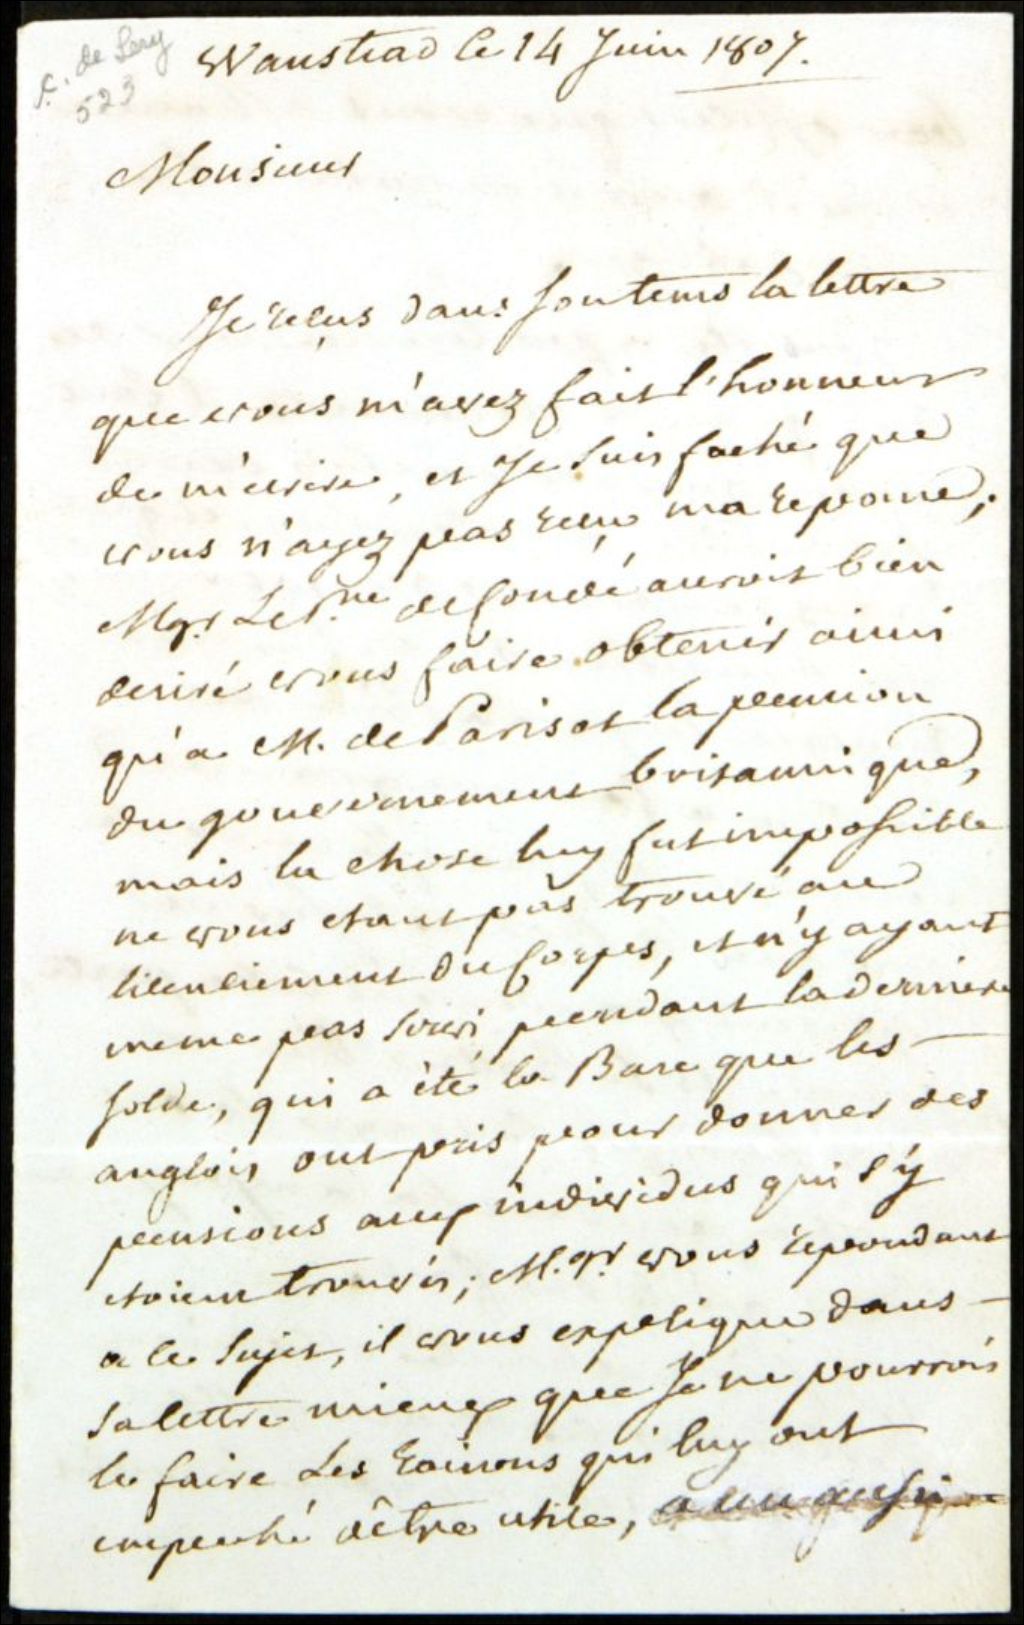 C. de Lery
523
Wanstead Ce 14 Juin 1807.
Monsieur
Je reçus dans son tems la lettre
que vous m'avez fait l'honneur
de m'ecrire, et Je suis faché que
vous n'ayez pas reçu ma reponse;
Mgr. Le P.nce de Condé auroit bien
desiré vous faire obtenir ainsi
qu'a M. de Parisot la pension
du gouvernement britannique,
mais la chose luy fut impossible
ne vous etant pas trouvé au
licenciement du Corps, et n'y ayant
meme pas servi pendant la derniere
solde, qui a été la Base que les
anglois ont pris pour donner des
pensions aux individus qui s'y
etoient trouvés; M.gr vous repondant
a ce sujet, il vous explique dans
sa lettre mieux que Je ne pourrois
le faire Les raisons qui luy ont
empeché d'être utile,